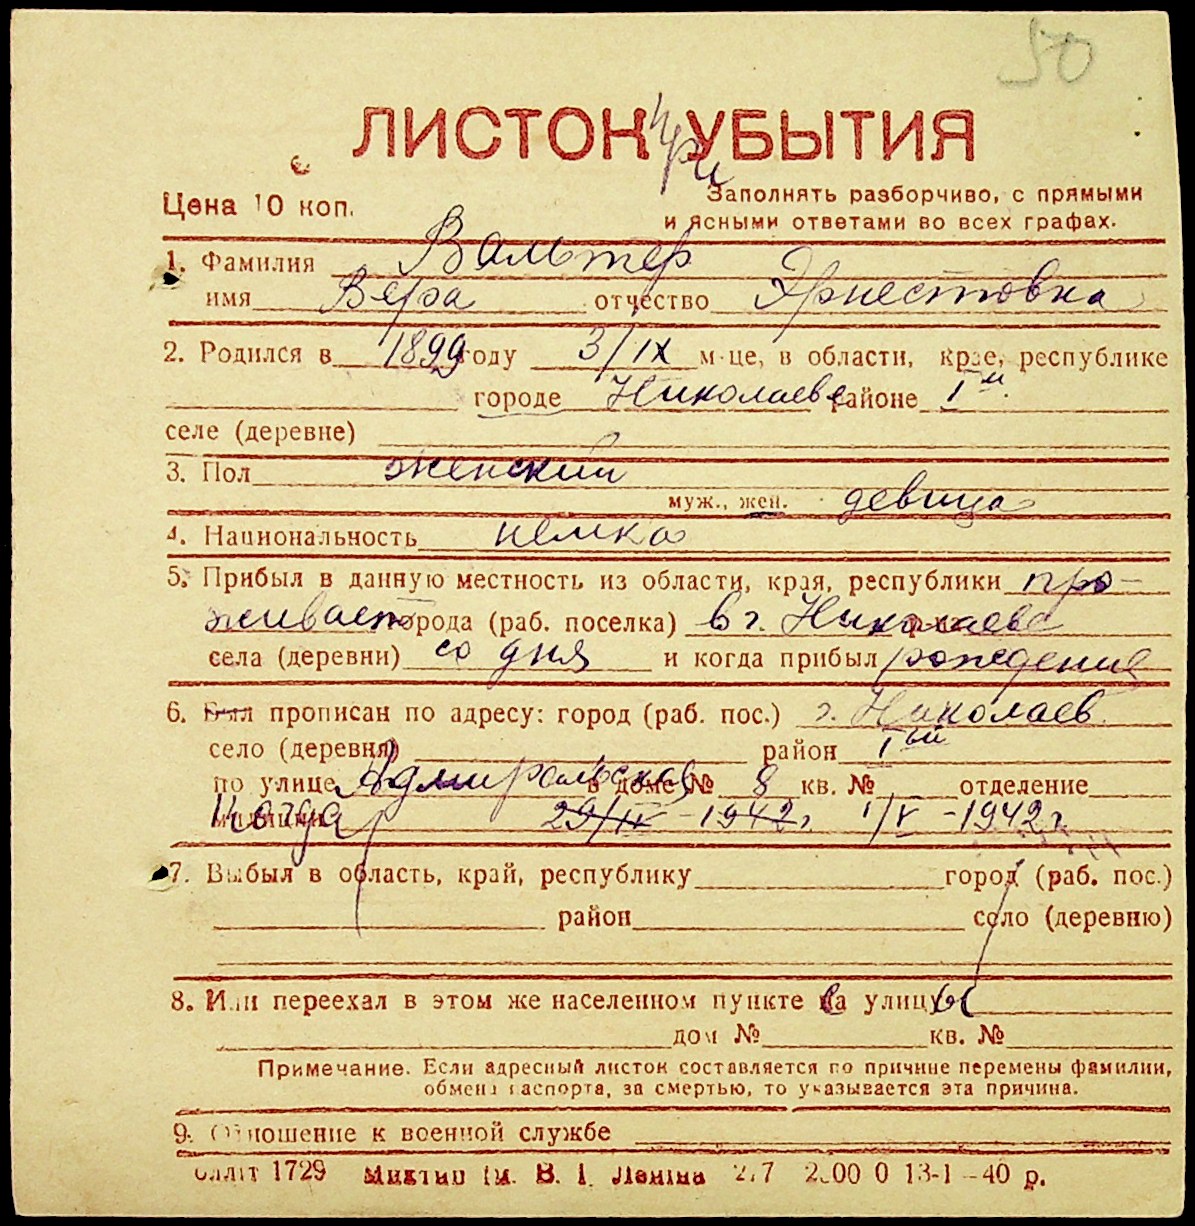 50
ЛИСТОК при УБЫТИЯ
Цена 10 коп.
Заполнять разборчиво, с прямыми
и ясными ответами во всех графах.
1. Фамилия Вальтер
имя Вера отчество Эрнестовна
2. Родился в 1899 году 3/IX м-це, в области, крае, республике
городе Николаеве районе I м
селе (деревне)
3. Пол женский
муж., жен. девица
4. Национальность немка
5. Прибыл в данную местность из области, края, республики про-
живает города (раб. поселка) в г. Николаеве
села (деревни) со дня и когда прибыл рождения
6. Был прописан по адресу: город (раб. пос.) г. Николаев
село (деревня) район I ый
по улице Адмиральская в доме № 8 кв. № отделение
милиции Когда 29/IV - 1942 г. 1/V - 1942 г.
7. Выбыл в область, край, республику город (раб. пос.)
район село (деревню)
8. Или переехал в этом же населенном пункте на улицу
дом № кв. №
Примечание. Если адресный листок составляется по причине перемены фамилии,
обмена паспорта, за смертью, то указывается эта причина.
9. Отношение к военной службе
1729 им. В. І. Леніна 13-1-40 р.